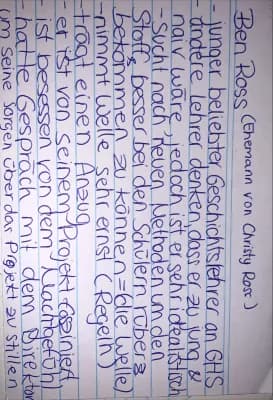 Ben Ross (Ehemann von Christy Ross)
- junger beliebter Geschichtslehrer an GHS
- andere Lehrer denken, dass er zu jung &
naiv wäre, jedoch ist er sehr idealistisch
- sucht nach neuen Methoden um den
Stoff besser bei den Schülern rüber &
bekommen zu können = (die Welle)
- nimmt Welle sehr ernst (Regeln)
- trägt einen Anzug
- er ist von seinem Projekt fasziniert
ist besessen von dem Machtgefühl
- hatte Gespräch mit dem Direktor
um seine Sorgen über das Projekt zu stillen